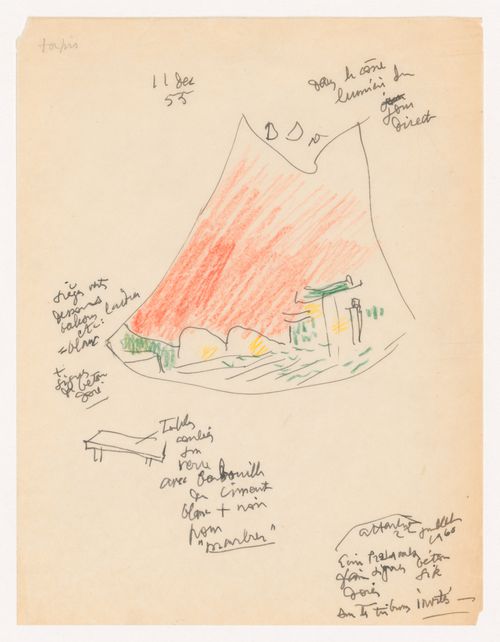 tapis
11 dec
55
dans le cône
lumière du
jour
direct
sièges verts
dessous
balcons
etc:
= blanc
+
signes
de béton
doré
Tables
coulées
sur
verre
avec
du ciment
blanc + noir
pour
"marbrer"
attention
22 juillet
1960
faire signes béton
dorés
sur les tribunes invités